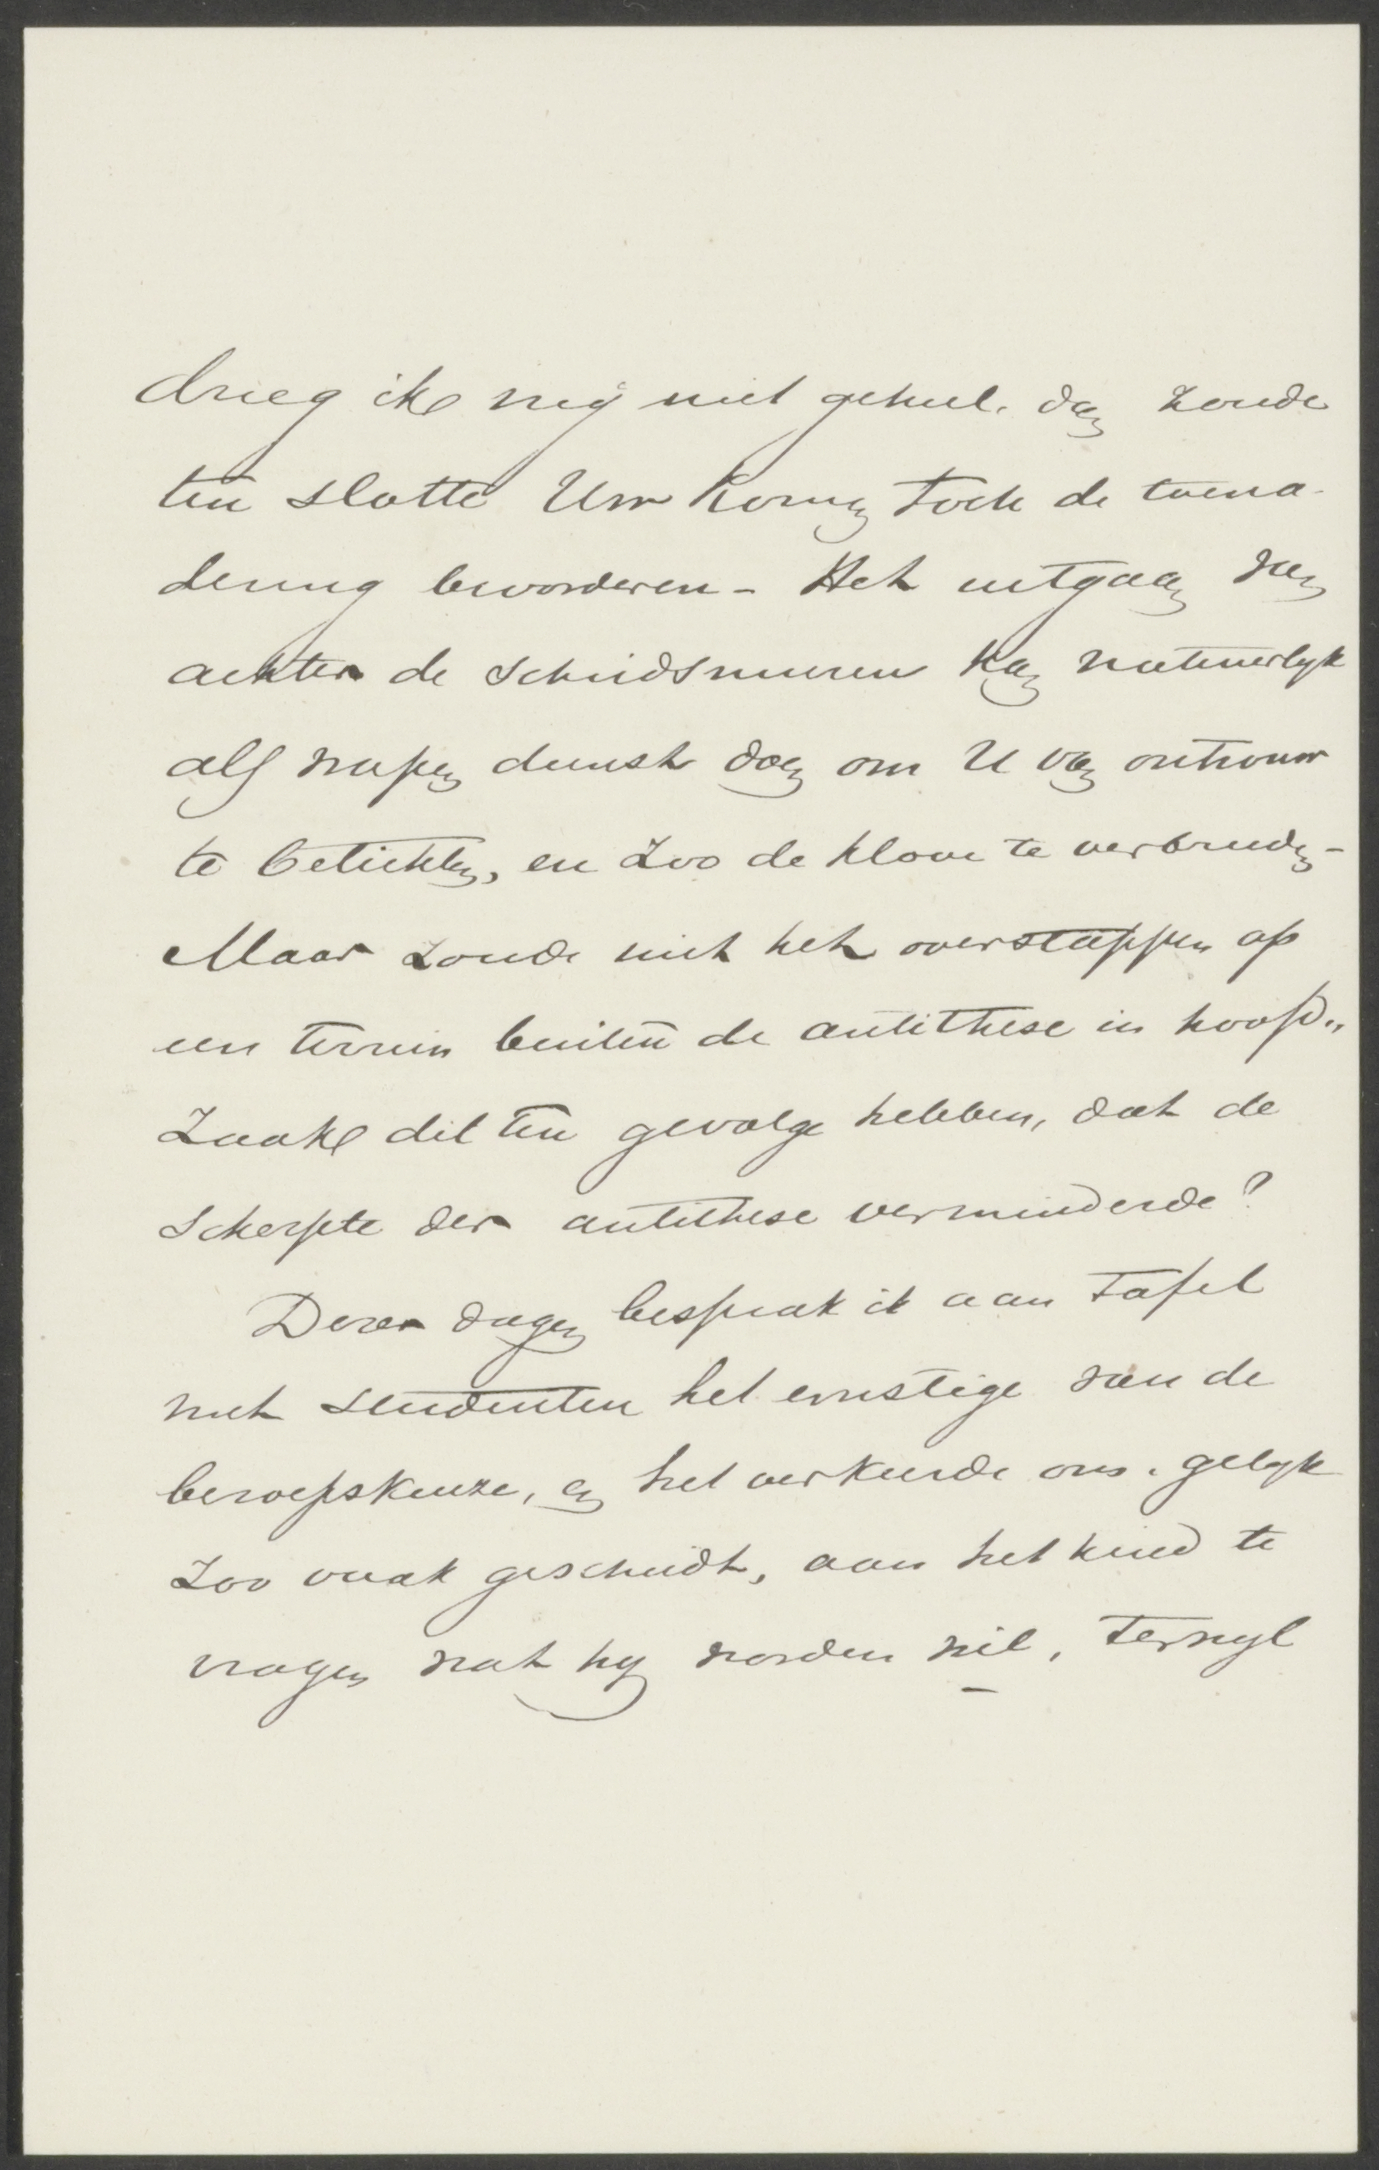 drieg ik mij niet geheel. dan zoude
ten slotte Uw komen toch de toena-
dering bevorderen - Het uitgaan van
achter de scheidsmuren kan natuurlyk
als wapen dienst doen om U van ontrouw
te betichten, en zoo de klove te verbreeden -
Maar zoude niet het overstappen op
een terrein buiten de antithese in hoofd-
zaak dit ten gevolge hebben, dat de
scherpte der antithese verminderde?
Dezer dagen besprak ik aan tafel
met studenten het ernstige van de
beroepskeuze, en het verkeerde om. gelyk
zoo vaak geschiedt, aan het kind te
vragen wat hy worden wil, terwyl